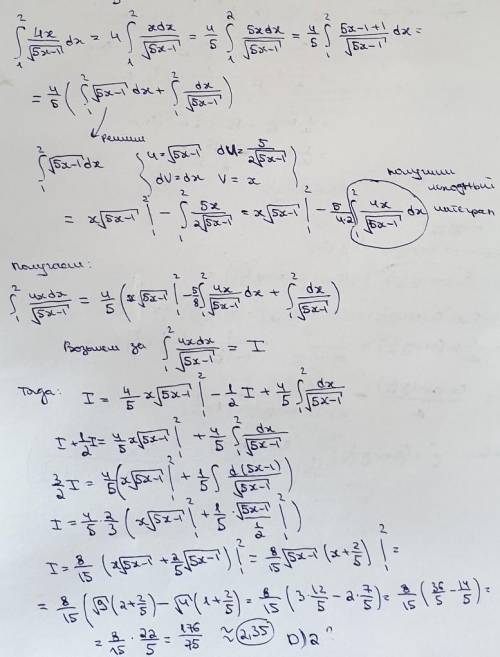 ∫₁² 4x/√(5x-1) dx = 4 ∫₁² xdx/√(5x-1) = 4/5 ∫₁² 5xdx/√(5x-1) = 4/5 ∫₁² (5x-1+1)/√(5x-1) dx =
= 4/5 ( ∫₁² √(5x-1) dx + ∫₁² dx/√(5x-1) )
решим
∫₁² √(5x-1) dx { u = √(5x-1) du = 5/(2√(5x-1))
dV = dx V = x }
получили исходный интеграл
= x√(5x-1) |₁² - ∫₁² 5x/(2√(5x-1)) = x√(5x-1) |₁² - 5/(4·2) ∫₁² 4x/√(5x-1) dx
Получаем:
∫₁² 4xdx/√(5x-1) = 4/5 ( x√(5x-1) |₁² - 5/8 ∫₁² 4x/√(5x-1) dx + ∫₁² dx/√(5x-1) )
Возьмем за ∫₁² 4xdx/√(5x-1) = I
Тогда: I = 4/5 x√(5x-1) |₁² - 1/2 I + 4/5 ∫₁² dx/√(5x-1)
I + 1/2 I = 4/5 x√(5x-1) |₁² + 4/5 ∫₁² dx/√(5x-1)
3/2 I = 4/5 ( x√(5x-1) |₁² + 1/5 ∫ d(5x-1)/√(5x-1) )
I = 4/5 · 2/3 ( x√(5x-1) |₁² + 1/5 · √(5x-1)/(1/2) |₁² )
I = 8/15 ( x√(5x-1) + 2/5 √(5x-1) ) |₁² = 8/15 √(5x-1) ( x + 2/5 ) |₁² =
= 8/15 ( √9 (2 + 2/5) - √4 (1 + 2/5) ) = 8/15 ( 3 · 12/5 - 2 · 7/5 ) = 8/15 ( 36/5 - 14/5 ) =
= 8/15 · 22/5 = 176/75 ≈ 2,35 D) 2 ?